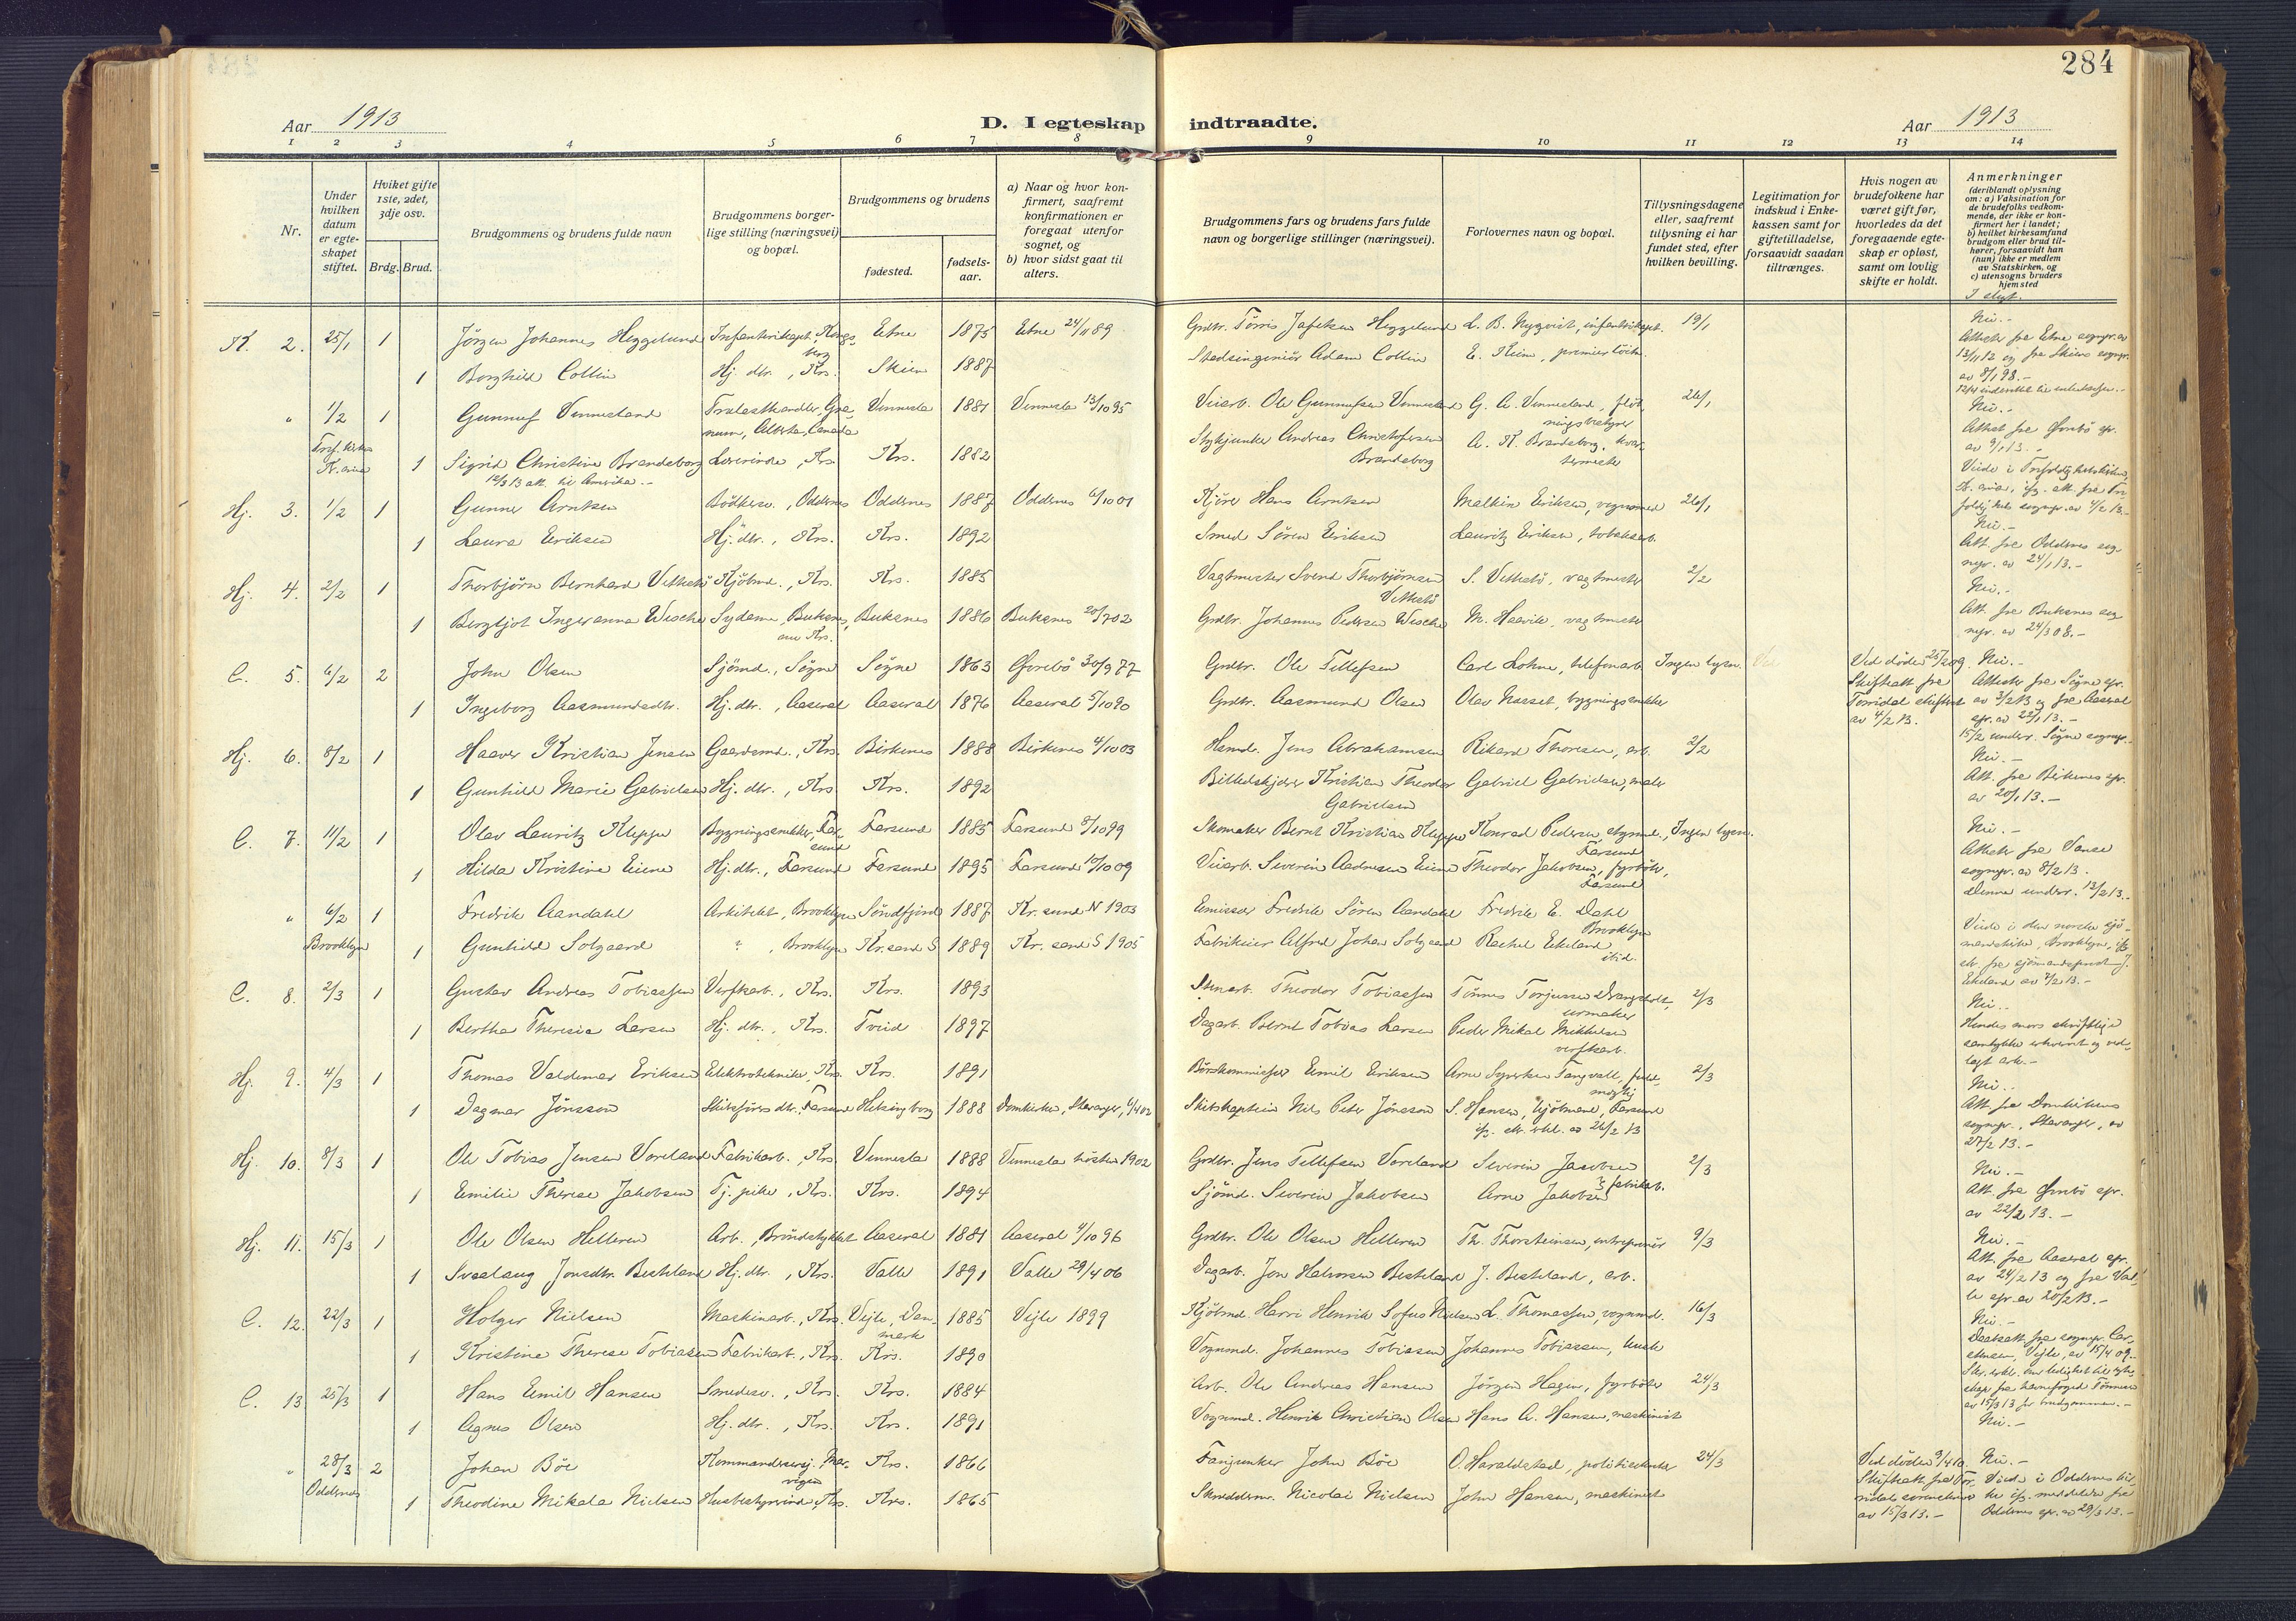 284
Aar 1913
D. I egteskap indtraadte.
Aar 1913
1 2 3 4 5 6 7 8 9 10 11 12 13 14
Nr.
Under hvilken datum er egteskapet stiftet.
Hviket gifte 1ste, 2det, 3dje osv.
Brdg. Brud.
Brudgommens og brudens fulde navn
Brudgommens borgerlige stilling (næringsvei) og bopæl.
Brudgommens og brudens
fødested.
fødsels-aar.
a) Naar og hvor konfirmert, saafremt konfirmationen er foregaat utenfor sognet, og
b) hvor sidst gaat til alters.
Brudgommens fars og brudens fars fulde navn og borgerlige stillinger (næringsvei).
Forlovernes navn og bopæl.
Tillysningsdagene eller, saafremt tillysning ei har fundet sted, efter hvilken bevilling.
Legitimation for indskud i Enkekassen samt for giftetilladelse, forsaavidt saadan tiltrænges.
Hvis nogen av brudefolkene har været gift før, hvorledes da det foregaaende egteskap er opløst, samt om lovlig skifte er holdt.
Anmerkninger
(deriblandt oplysning om: a) Vaksination for de brudefolks vedkommende, der ikke er konfirmert her i landet; b) hvilket kirkesamfund brudgom eller brud tilhører, forsaavidt han (hun) ikke er medlem av Statskirken, og c) utensogns bruders hjemsted
I slegt.
K. 2. 25/1 1 Jörgen Johannes Heggelund Infanterikapt., Kongsberg Etne 1875 Etne 24/11 89 Grdbr. Torris Jafetsen Heggelund L. B. Nyqvist, infanterikapt. 19/1 Nei.-
1 Borghild Collin Hj. dtr., Krs. Skien 1887 Stadsingeniör Adam Collin E. Heim, premierlöitn. Attester fra Etne sognepr. av 13/11 12 og fra Skiens sognepr. av 8/1 98.-
" 1/2 1 Gunnuf Vennesland Trælasthandler, Granum, Alberta, Canada Vennesla 1881 Vennesla 13/10 95 Veiarb. Ole Gunnufsen Vennesland G. A. Vennesland, flötningsbestyrer 26/1 Nei.-
Tref. kirke Kr.ania 1 Sigrid Christine Brandeborg Lærerinde, Krs. Krs. 1882 Stykjunker Andreas Christofersen Brandeborg A. K. Brandeborg, kvartermester
12/3 13 att. til Amerika.-
Hj. 3. 1/2 1 Gunner Arntsen Bödkersv., Oddernes Oddernes 1887 Oddernes 6/10 01 Kjörer Hans Arntsen Malkin Eriksen, vognmand 26/1 Nei.-
1 Laura Eriksen Hj. dtr., Krs. Krs. 1892 Smed Sören Eriksen Lauritz Eriksen, tobaksarb. Att. fra Oddernes sognepr. av 24/1 13.-
Hj. 4. 2/2 1 Thorbjörn Bernhard Vetteitö Kjöbmd., Krs. Krs. 1885 Vagtmester Svend Thorbjörnsen S. Vetteitö, vagtmester 2/2 Nei.-
1 Bergljot Ingeranna Wesche Sydame, Buksnes, nu Krs. Buksnes 1886 Buksnes 20/7 02 Grdbr. Johannes Pedersen Wesche M. Haavik, vagtmester Att. fra Buksnes sognepr. av 24/3 08.-
C. 5. 6/2 2 John Olsen Sjömd., Sögne Sögne 1863 Övrebö 30/9 77 Grdbr. Ole Tellefsen Carl Lohne, telefonarb. Ingen lysn. Ved döden 25/2 09. Skifteatt. fra Torridal skifteret av 4/2 13. Nei.-
1 Ingeborg Aasmundsdtr. Hj. dtr., Aaseral Aaseral 1876 Aaseral 5/10 90 Grdbr. Aasmund Olsen Olav Naaset, bygningssnekker Attester fra Sögne spr. av 3/2 13 og fra Aaseral spr. av 22/1 13.-
15/2 underr. Sögne sognepr.
Hj. 6. 8/2 1 Haaver Kristian Jensen Gaardsmd., Krs. Birkenes 1888 Birkenes 4/10 03 Hemd. Jens Abrahamsen Rikard Thoresen, arb. 2/2 Nei.-
1 Gunhild Marie Gabrielsen Hj. dtr., Krs. Krs. 1892 Billedskjærer Kristian Theodor Gabrielsen Gabriel Gabrielsen, maler Att. fra Birkenes spr. av 20/1 13.-
C. 7. 11/2 1 Olav Lauritz Kleppe Bygningssnekker, Farsund Farsund 1885 Farsund 8/10 99 Skomaker Bernt Kristian Kleppe Konrad Pedersen, styrmd., Farsund Ingen lysn. Nei.-
1 Hilda Kristine Eiene Hj. dtr., Farsund Farsund 1895 Farsund 10/10 09 Veiarb. Severin Aadnesen Eiene Theodor Jakobsen, fyrböter, Farsund Attester fra Vanse sognepr. av 8/2 13. Denne underr. 13/2 13.
" 6/2 1 Fredrik Aandahl Arkitekt, Brooklyn Söndfjord 1887 Kr.sund N 1903 Emissær Fredrik Sören Aandahl Fredrik E. Dahl Brooklyn
Brooklyn 1 Gunhild Solgaard ", Brooklyn Kr.sand S 1889 Kr.sand S 1905 Fabrikeier Alfred Johan Solgaard Rachel Eckeland ibid. Viede i den norske sjömandskirke, Brooklyn, ifg. att. fra sjömandsprest J. Ekeland av 7/2 13.-
C. 8. 2/3 1 Gustav Andreas Tobiassen Verftsarb., Krs. Krs. 1893 Stenarb. Theodor Tobiassen Tönnes Torjussen Drangsholt, urmaker 2/3 Nei.-
1 Bertha Theresia Larsen Hj. dtr., Krs. Tveid 1897 Dagarb. Bernt Tobias Larsen Peder Mikal Mikkelsen verftsarb. Hendes mors skriftlige samtykke erhvervet og vedlagt ark.-
Hj. 9. 4/3 1 Thomas Valdemar Eriksen Elektrotekniker, Krs. Krs. 1891 Börskommissær Emil Eriksen Arne Syvertsen Fangvall, fuldmægtig 2/3 Nei.-
1 Dagmar Jönsson Skibsförers dtr., Farsund Helsingborg 1888 Domkirken, Stavanger, 6/4 02 Skibskaptein Nils Peter Jönsson S. Hansen, kjöbmand, Farsund ifg. skr. erkl. av 26/2 13 Att. fra Domkirkens sognepr., Stavanger, av 27/2 13.-
Hj. 10. 8/3 1 Ole Tobias Jensen Voreland Fabrikarb., Krs. Vennesla 1888 Vennesla hösten 1902 Grdbr. Jens Tellefsen Voreland Severin Jacobsen 2/3 Nei.-
1 Emilie Therese Jakobsen Tj. pike, Krs. Krs. 1894 Sjömd. Severin Jakobsen Arne Jakobsen fabrikarb. Att. fra Övrebö spr. av 22/2 13.-
Hj. 11. 15/3 1 Ole Olsen Helleren Arb., Bröndstykket Aaseral 1881 Aaseral 4/10 96 Grdbr. Ole Olsen Helleren Th. Thorsteinsen, entreprenör 9/3 Nei.-
1 Svaalaug Jonsdtr. Besteland Hj. dtr., Krs. Valle 1891 Valle 29/4 06 Dagarb. Jon Halvorsen Besteland J. Besteland, arb. Att. fra Aaseral spr. av 24/2 13 og fra Valle spr. av 20/2 13.-
C. 12. 22/3 1 Holger Nielsen Maskinarb., Krs. Vejle, Danmark 1885 Vejle 1899 Kjöbmd. Harri Henrik Sofus Nielsen L. Thomassen, vognmd. 16/3 Nei.-
1 Kristine Therese Tobiasen Fabrikarb., Krs. Krs. 1890 Vognmd. Johannes Tobiassen Johannes Tobiassen, kusk
C. 13 25/3 1 Hans Emil Hansen Smedesv., Krs. Krs. 1884 Arb. Ole Andreas Hansen Jörgen Hagen, fyrböter 24/3
1 Agnes Olsen Hj. dtr., Krs. Krs. 1891 Vognmd. Henrik Christian Olsen Hans A. Hansen, maskinist Nei.-
" 28/3 2 Johan Böe Kommandersersj. Marvigen Krs. 1866 Fanejunker John Böe O. Haraldstad, politibetjent 24/3 Ved döden 9/4 10. Skifteatt. fra Torridals sorenskriver av 15/3 13.- Nei.-
Oddernes 1 Theodine Mikala Nielsen Husbestyrerinde, Krs. Krs. 1865 Skræddermr. Nicolai Nielsen John Hansen, maskinist Viede i Oddernes kirke ifg. meddelelse fra Oddernes spr. av 29/3 13.-